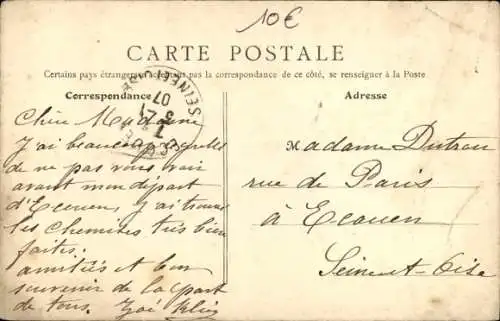 10€
CARTE POSTALE
Certains pays étrangers n'acceptent pas la correspondance de ce côté, se renseigner à la Poste
Correspondance
Adresse
SEINE-ET-OISE
21
07
Chère Madame
J'ai beaucoup
de ne pas vous voir
avant mon départ
d'Ecouen, j'ai trouvé
les chemises très bien
faites.
amitiés et bon
souvenir de la part
de tous.
Madame Dutrou
rue de Paris
à Ecouen
Seine-et-Oise